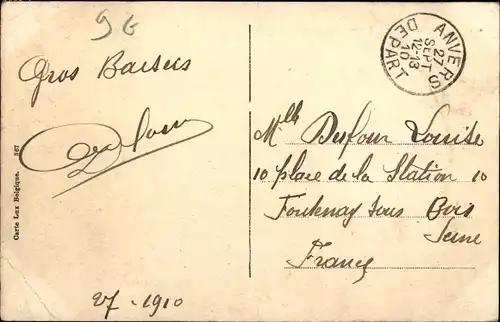 9G
Gros Baisers
ANVERS
27
SEPT
12-13
10
DEPART
Mlle Dufour Louise
10 place de la Station 10
Fontenay sous Bois
Seine
France
27-1910
Carte Lux Belgique. 867